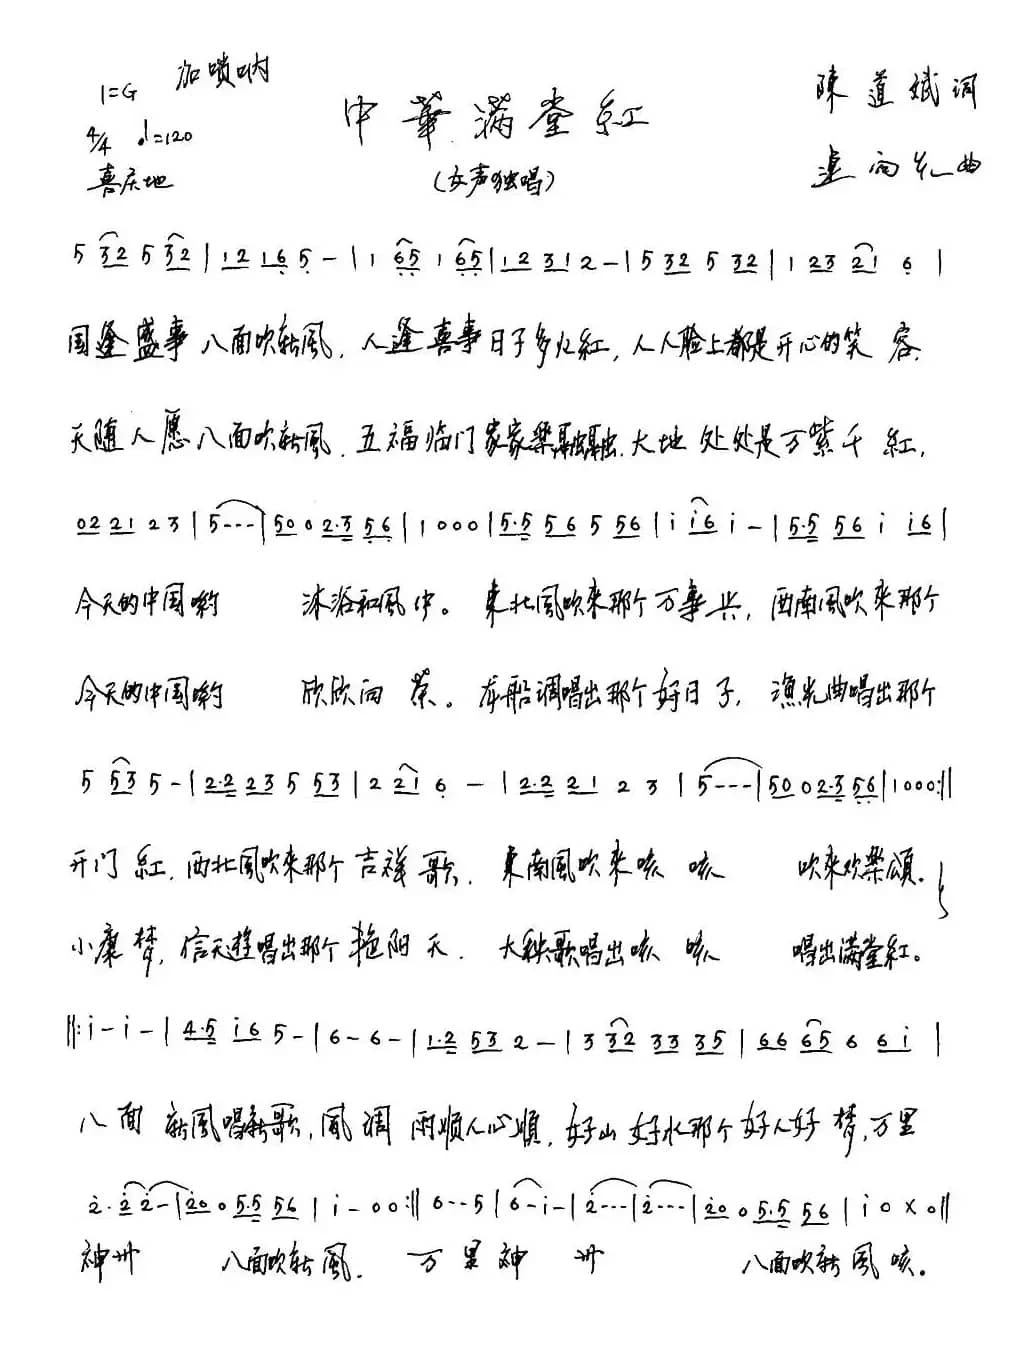 1=G 加唢呐
中華满堂紅
陳道斌词
4/4 ♩=120
喜庆地
(女声独唱)
連向先曲
5 32 5 32 | 12 16 5 - | 1 65 1 65 | 12 31 2 - | 5 32 5 32 | 1 23 21 6 |
国逢盛事八面吹新風，人逢喜事日子多火紅，人人脸上都是开心的笑容，
天随人愿八面吹新風，五福临门家家樂融融，大地处处是万紫千紅，
02 21 2 3 | 5--- | 50 0 2·3 56 | 1 0 0 0 | 5·5 56 5 56 | i i6 i - | 5·5 56 i i6 |
今天的中国哟 沐浴和風中。東北風吹来那个万事兴，西南風吹来那个
今天的中国哟 欣欣向荣。龙船调唱出那个好日子，漁光曲唱出那个
5 53 5 - | 2·2 23 5 53 | 2 21 6 - | 2·2 21 2 3 | 5--- | 50 0 2·3 56 | 1 0 0 0 :||
开门紅，西北風吹来那个吉祥歌，東南風吹来咳咳 吹来欢樂頌。
小康梦，信天遊唱出那个艳阳天，大秧歌唱出咳咳 唱出满堂紅。
||: i - i - | 4·5 i6 5 - | 6 - 6 - | 1·2 53 2 - | 3 32 33 35 | 66 65 6 6i |
八面新風唱新歌，風调雨顺人心順，好山好水那个好人好梦，万里
2· 2 2 - | 20 0 5·5 56 | i - 0 0 :|| 6--5 | 6 - i - | 2--- | 2--- | 20 0 5·5 56 | i 0 X 0 ||
神州 八面吹新風。万里神州 八面吹新風咳。